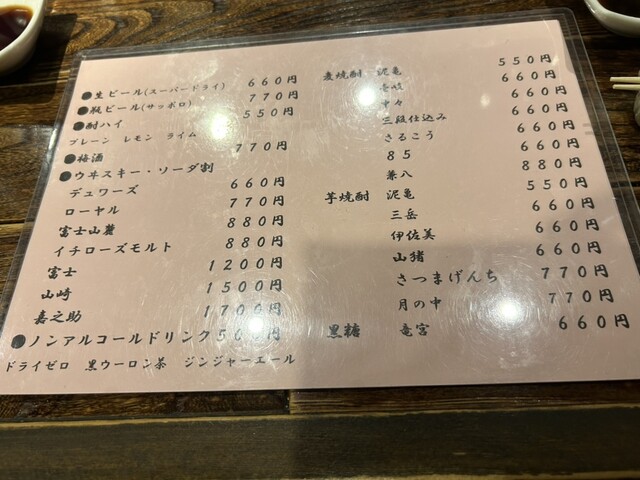 ●生ビール(スーパードライ) 660円
●瓶ビール(サッポロ) 770円
●酎ハイ 550円
プレーン レモン ライム
●梅酒 770円
●ウヰスキー・ソーダ割
デュワーズ 660円
ローヤル 770円
富士山麓 880円
イチローズモルト 880円
富士 1200円
山崎 1500円
嘉之助 1700円
●ノンアルコールドリンク 500円
ドライゼロ 黒ウーロン茶 ジンジャーエール
麦焼酎 泥亀 550円
壱岐 660円
中々 660円
三段仕込み 660円
さるこう 660円
85 660円
兼八 880円
芋焼酎 泥亀 550円
三岳 660円
伊佐美 660円
山猪 660円
さつまげんち 770円
月の中 770円
黒糖 竜宮 660円